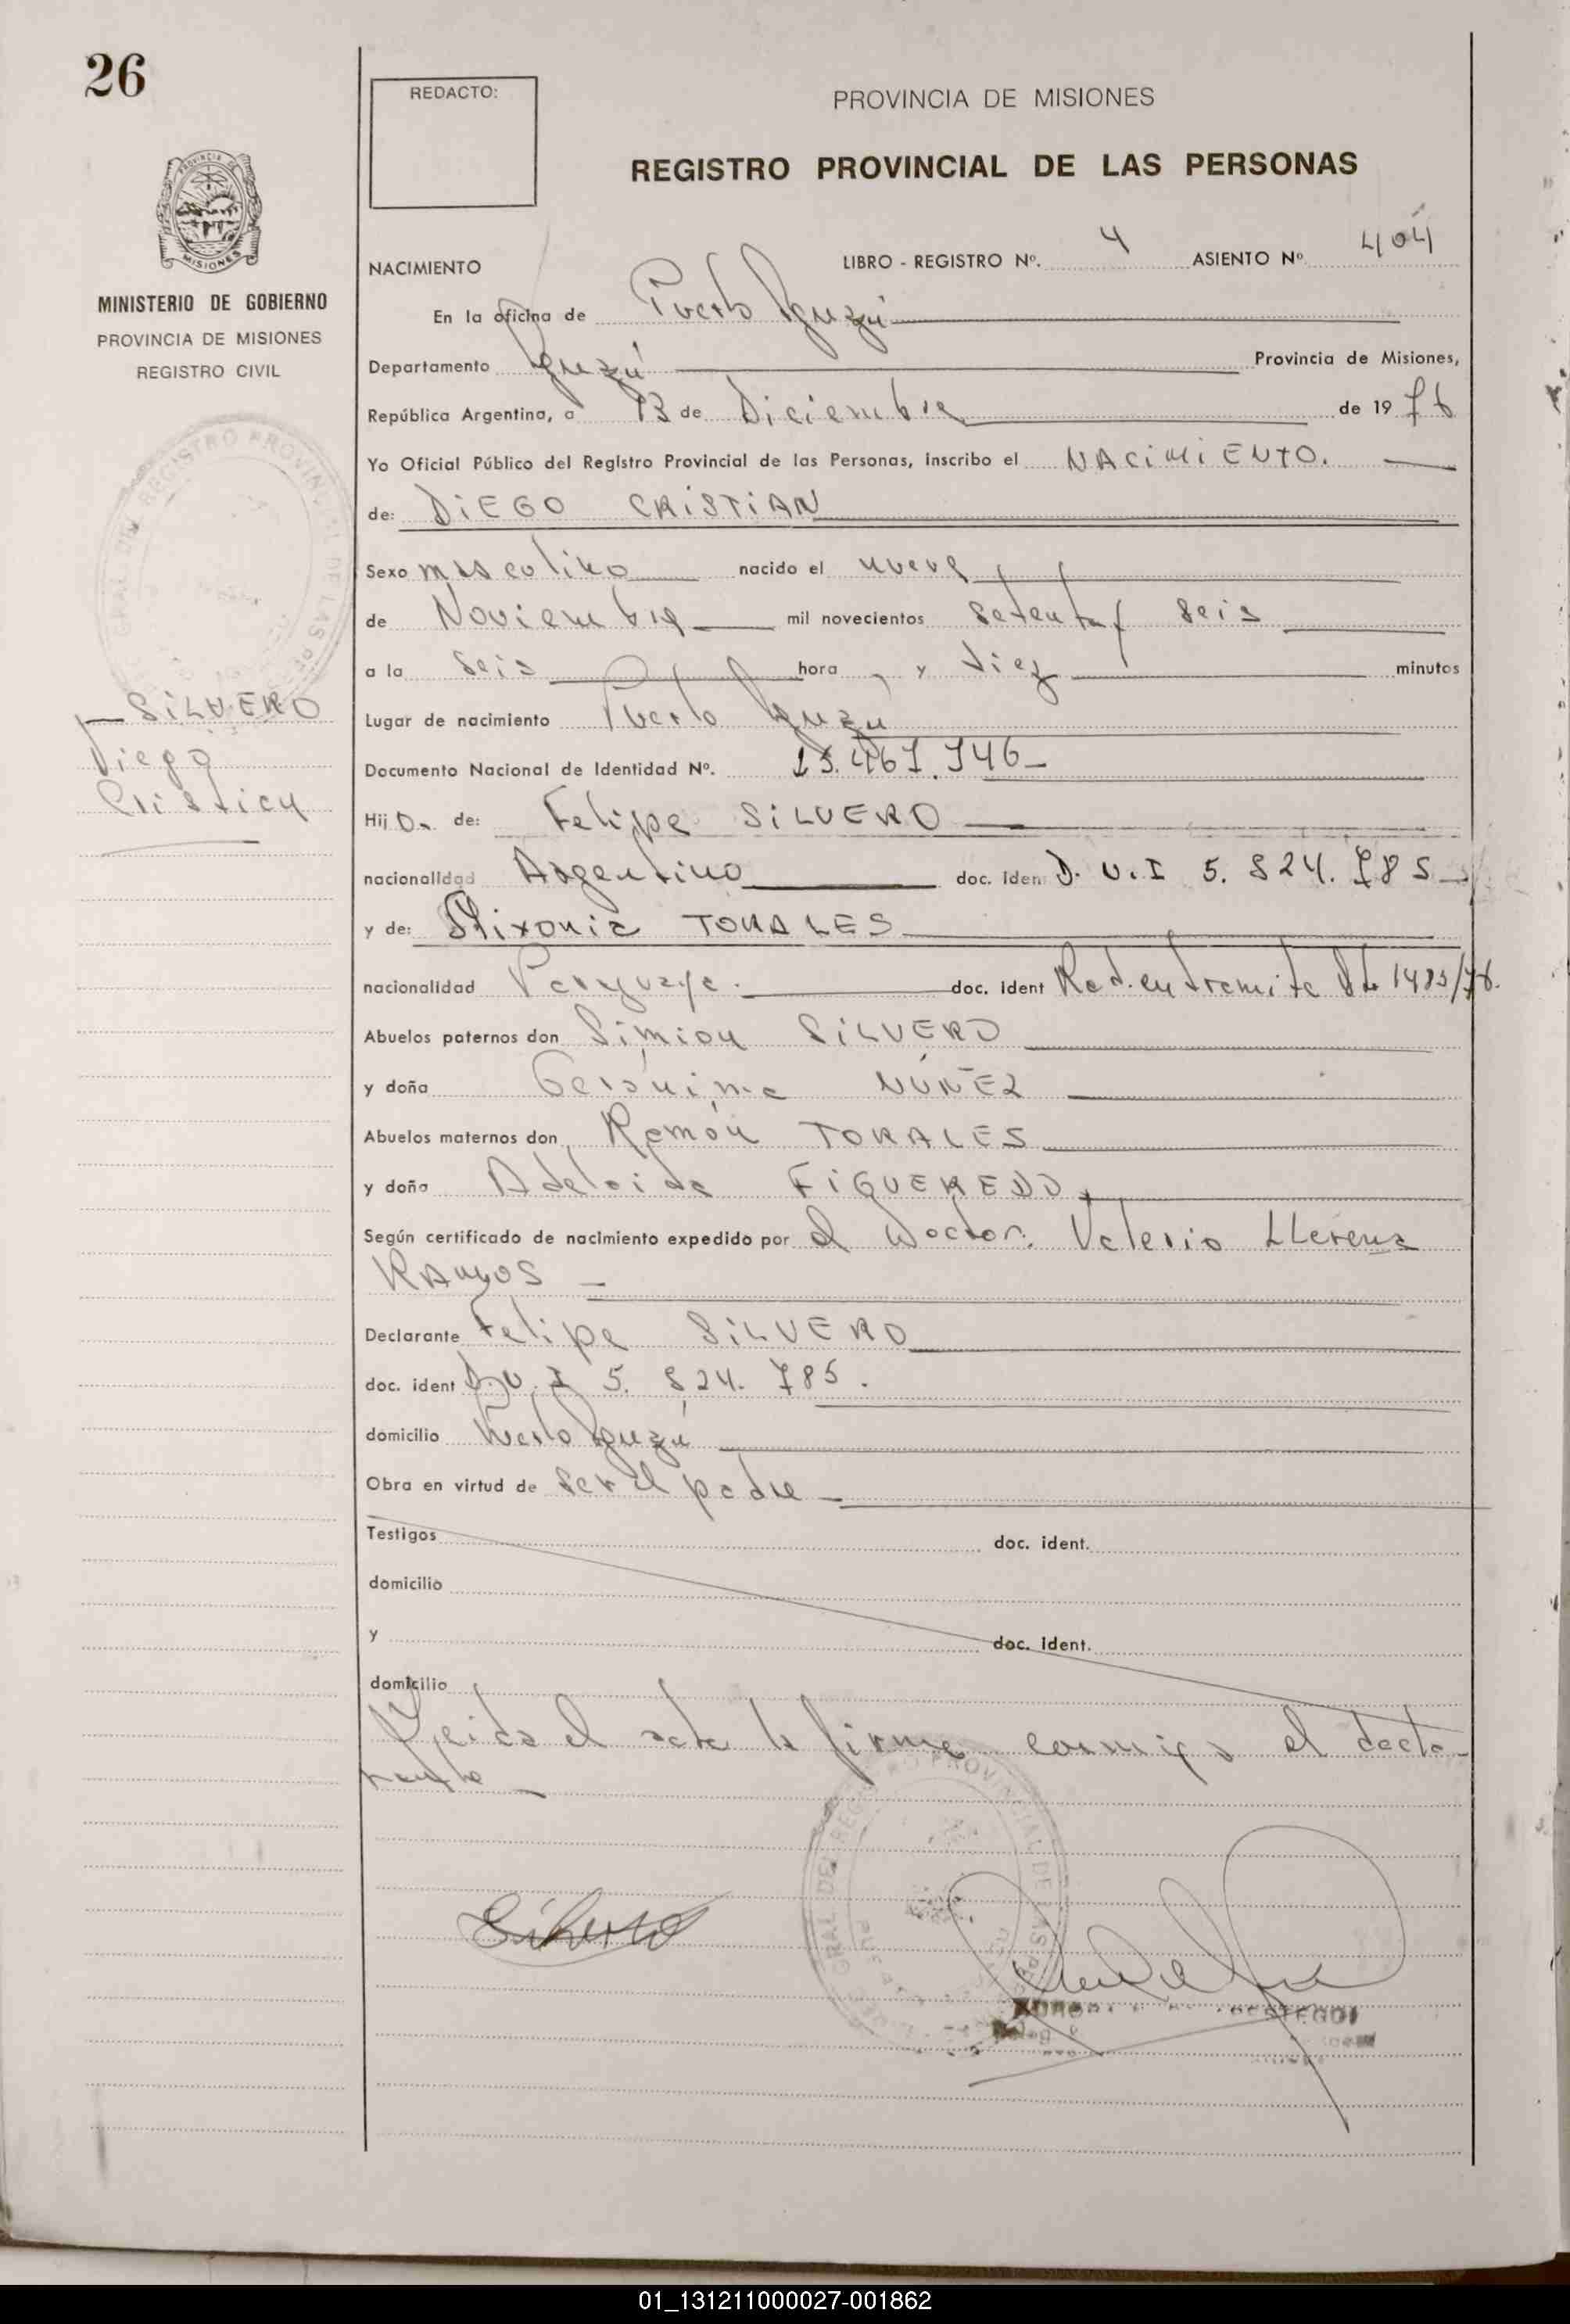 26
REDACTO:
PROVINCIA DE MISIONES
REGISTRO PROVINCIAL DE LAS PERSONAS
MISIONES
MINISTERIO DE GOBIERNO
PROVINCIA DE MISIONES
REGISTRO CIVIL
NACIMIENTO LIBRO - REGISTRO Nº. 4 ASIENTO Nº 404
En la oficina de Puerto Iguazú
Departamento Iguazú Provincia de Misiones,
República Argentina, a 13 de Diciembre de 1976
Yo Oficial Público del Registro Provincial de las Personas, inscribo el NACIMIENTO.
de: DIEGO CRISTIAN
Sexo masculino nacido el nueve
de Noviembre mil novecientos setenta y seis
a la seis hora, y diez minutos
SILVERO
Diego
Cristian
Lugar de nacimiento Puerto Iguazú
Documento Nacional de Identidad Nº.
Hijo de: Felipe SILVERO
nacionalidad Argentino doc. iden D.N.I 5.824.785
y de: TORALES
nacionalidad Paraguaya. doc. ident Rad. en tramite
Abuelos paternos don Simion SILVERO
y doña Gerónima NÚÑEZ
Abuelos maternos don Ramón TORALES
y doña Adelaida FIGUEREDO
Según certificado de nacimiento expedido por el Doctor. Valerio LLerena
RAMOS
Declarante Felipe SILVERO
doc. ident D.N.I 5.824.785.
domicilio Puerto Iguazú
Obra en virtud de ser el padre
Testigos doc. ident.
domicilio
y doc. ident.
domicilio
Leida el acta la firma conmigo el decla-
rante
Silvero
01_131211000027-001862